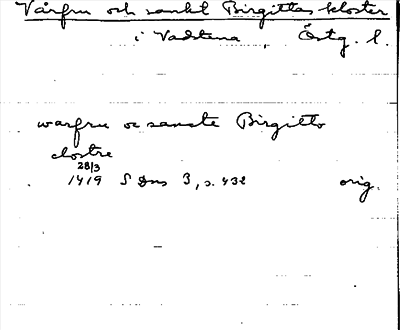 Vårfru och sankt Birgittas kloster
i Vadstena, Östg. l.
warfru oc sancte Birgitto
clostre
28/3
1419 SDns 3, s. 432 orig.